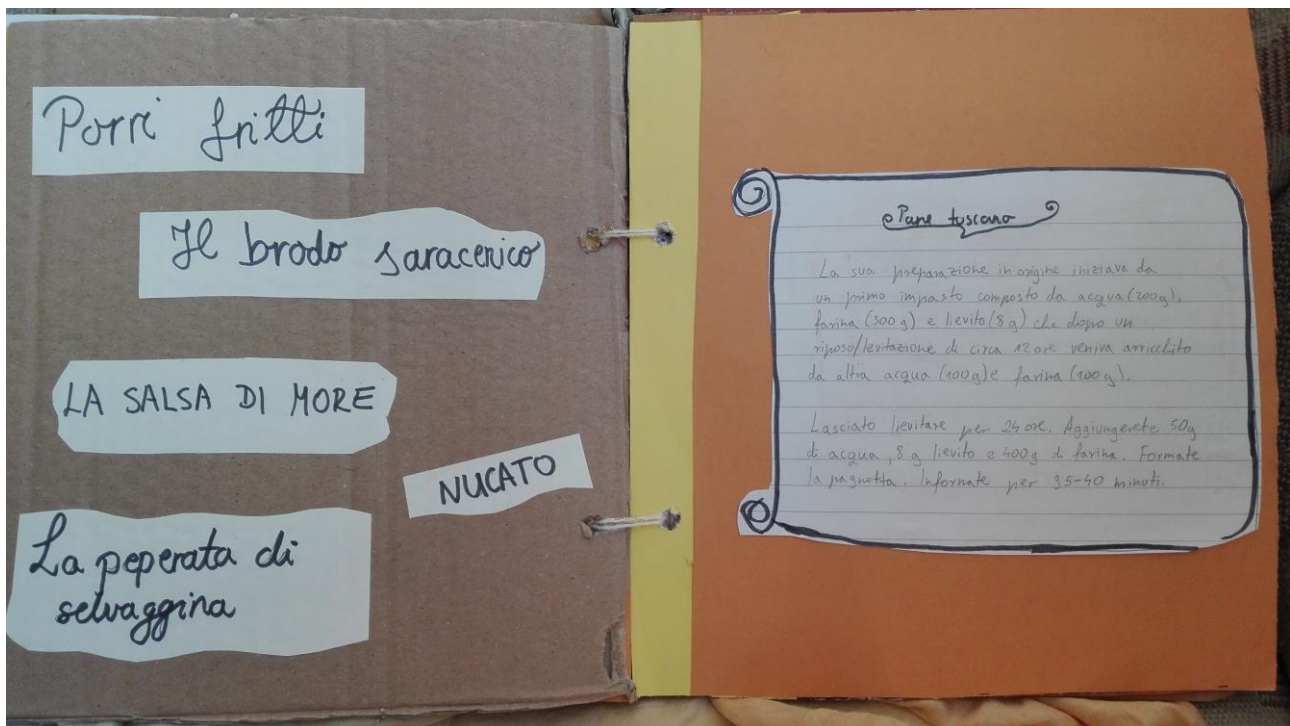 Porri fritti
Il brodo saracenico
LA SALSA DI MORE
NUCATO
La peperata di
selvaggina
Pane toscano
La sua preparazione in origine iniziava da
un primo impasto composto da acqua (200g),
farina (500g) e lievito (8g) che dopo un
riposo/levitazione di circa 12 ore veniva arricchito
da altra acqua (100g) e farina (100g).
Lasciato lievitare per 24 ore. Aggiungerete 50g
di acqua, 8g lievito e 400g di farina. Formate
la pagnotta. Infornate per 35-40 minuti.